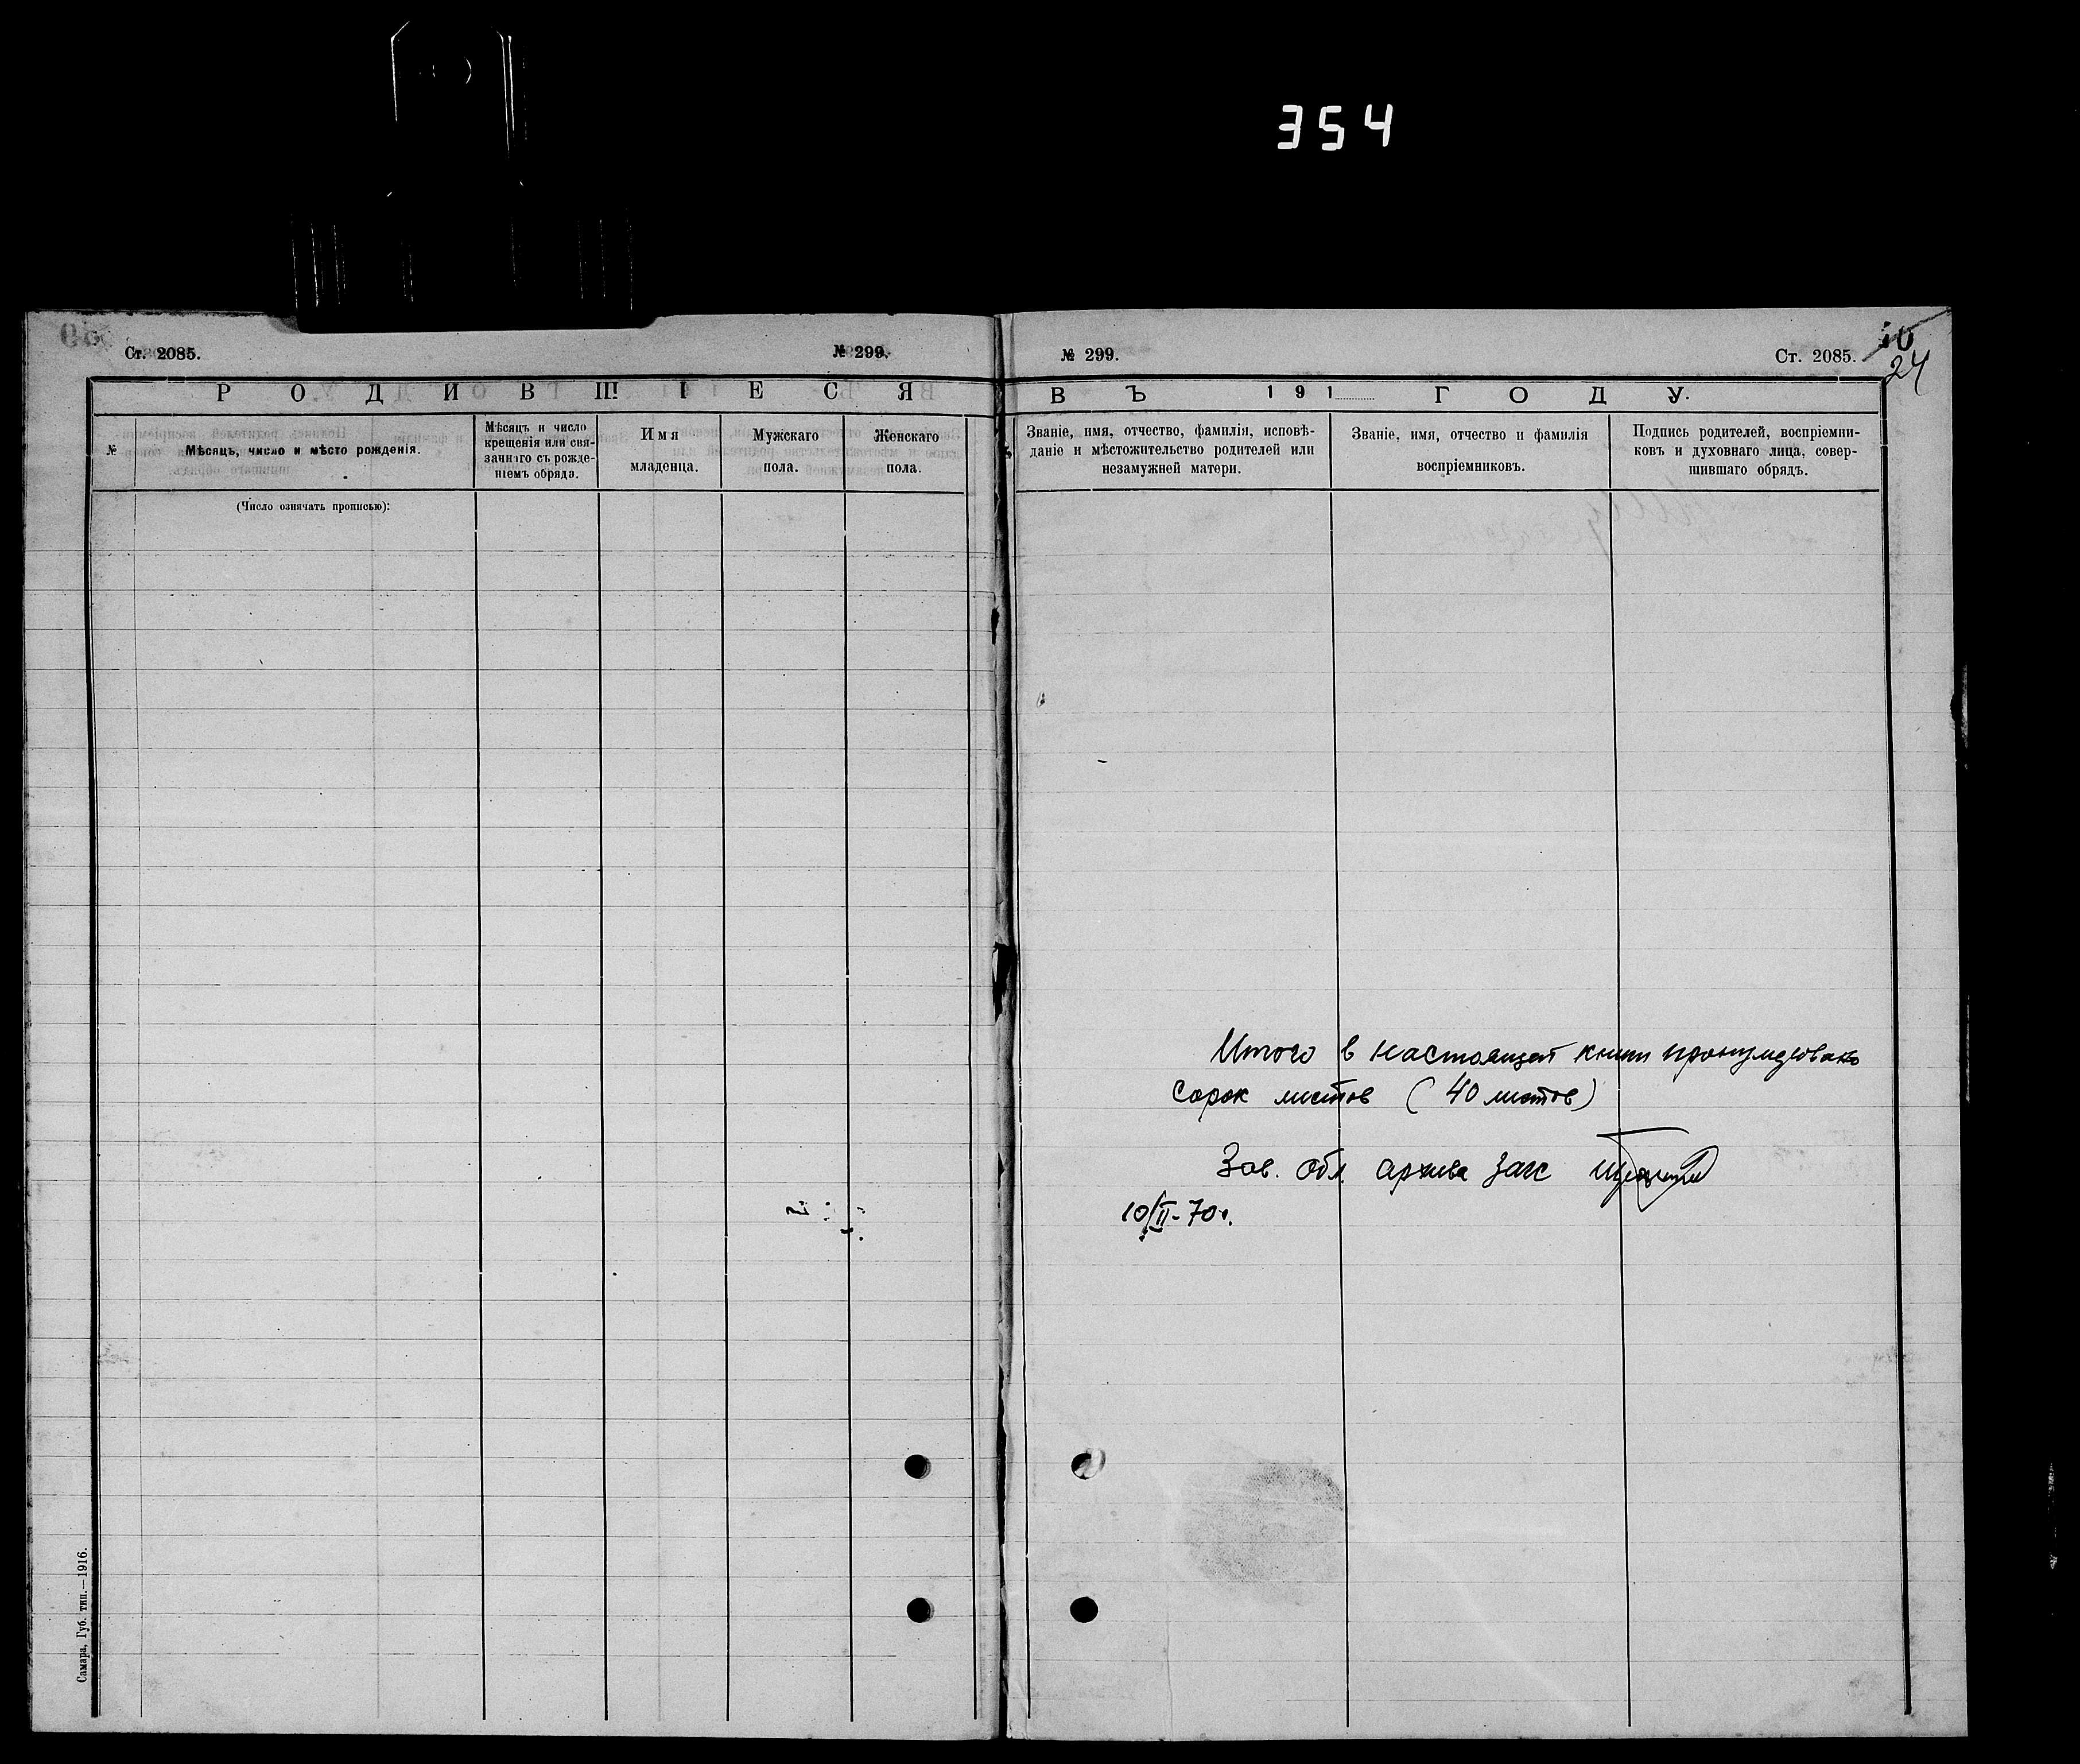 354
Ст. 2085.
№ 299.
РОДИВШІЕСЯ
№
Мѣсяцъ, число и мѣсто рожденія.
Мѣсяцъ и число
крещенія или свя-
заннаго съ рожде-
ніемъ обряда.
Имя
младенца.
Мужскаго
пола.
Женскаго
пола.
(Число означать прописью):
Самара, Губ. тип.—1916.
№ 299.
Ст. 2085.
24
ВЪ 191 ГОДУ.
Званіе, имя, отчество, фамилія, исповѣ-
даніе и мѣстожительство родителей или
незамужней матери.
Званіе, имя, отчество и фамилія
воспріемниковъ.
Подпись родителей, воспріемни-
ковъ и духовнаго лица, совер-
шившаго обрядъ.
Итого в настоящей книги пронумеровано
сорок листов (40 листов)
Зав. обл. архива Загс
10/II-70г.